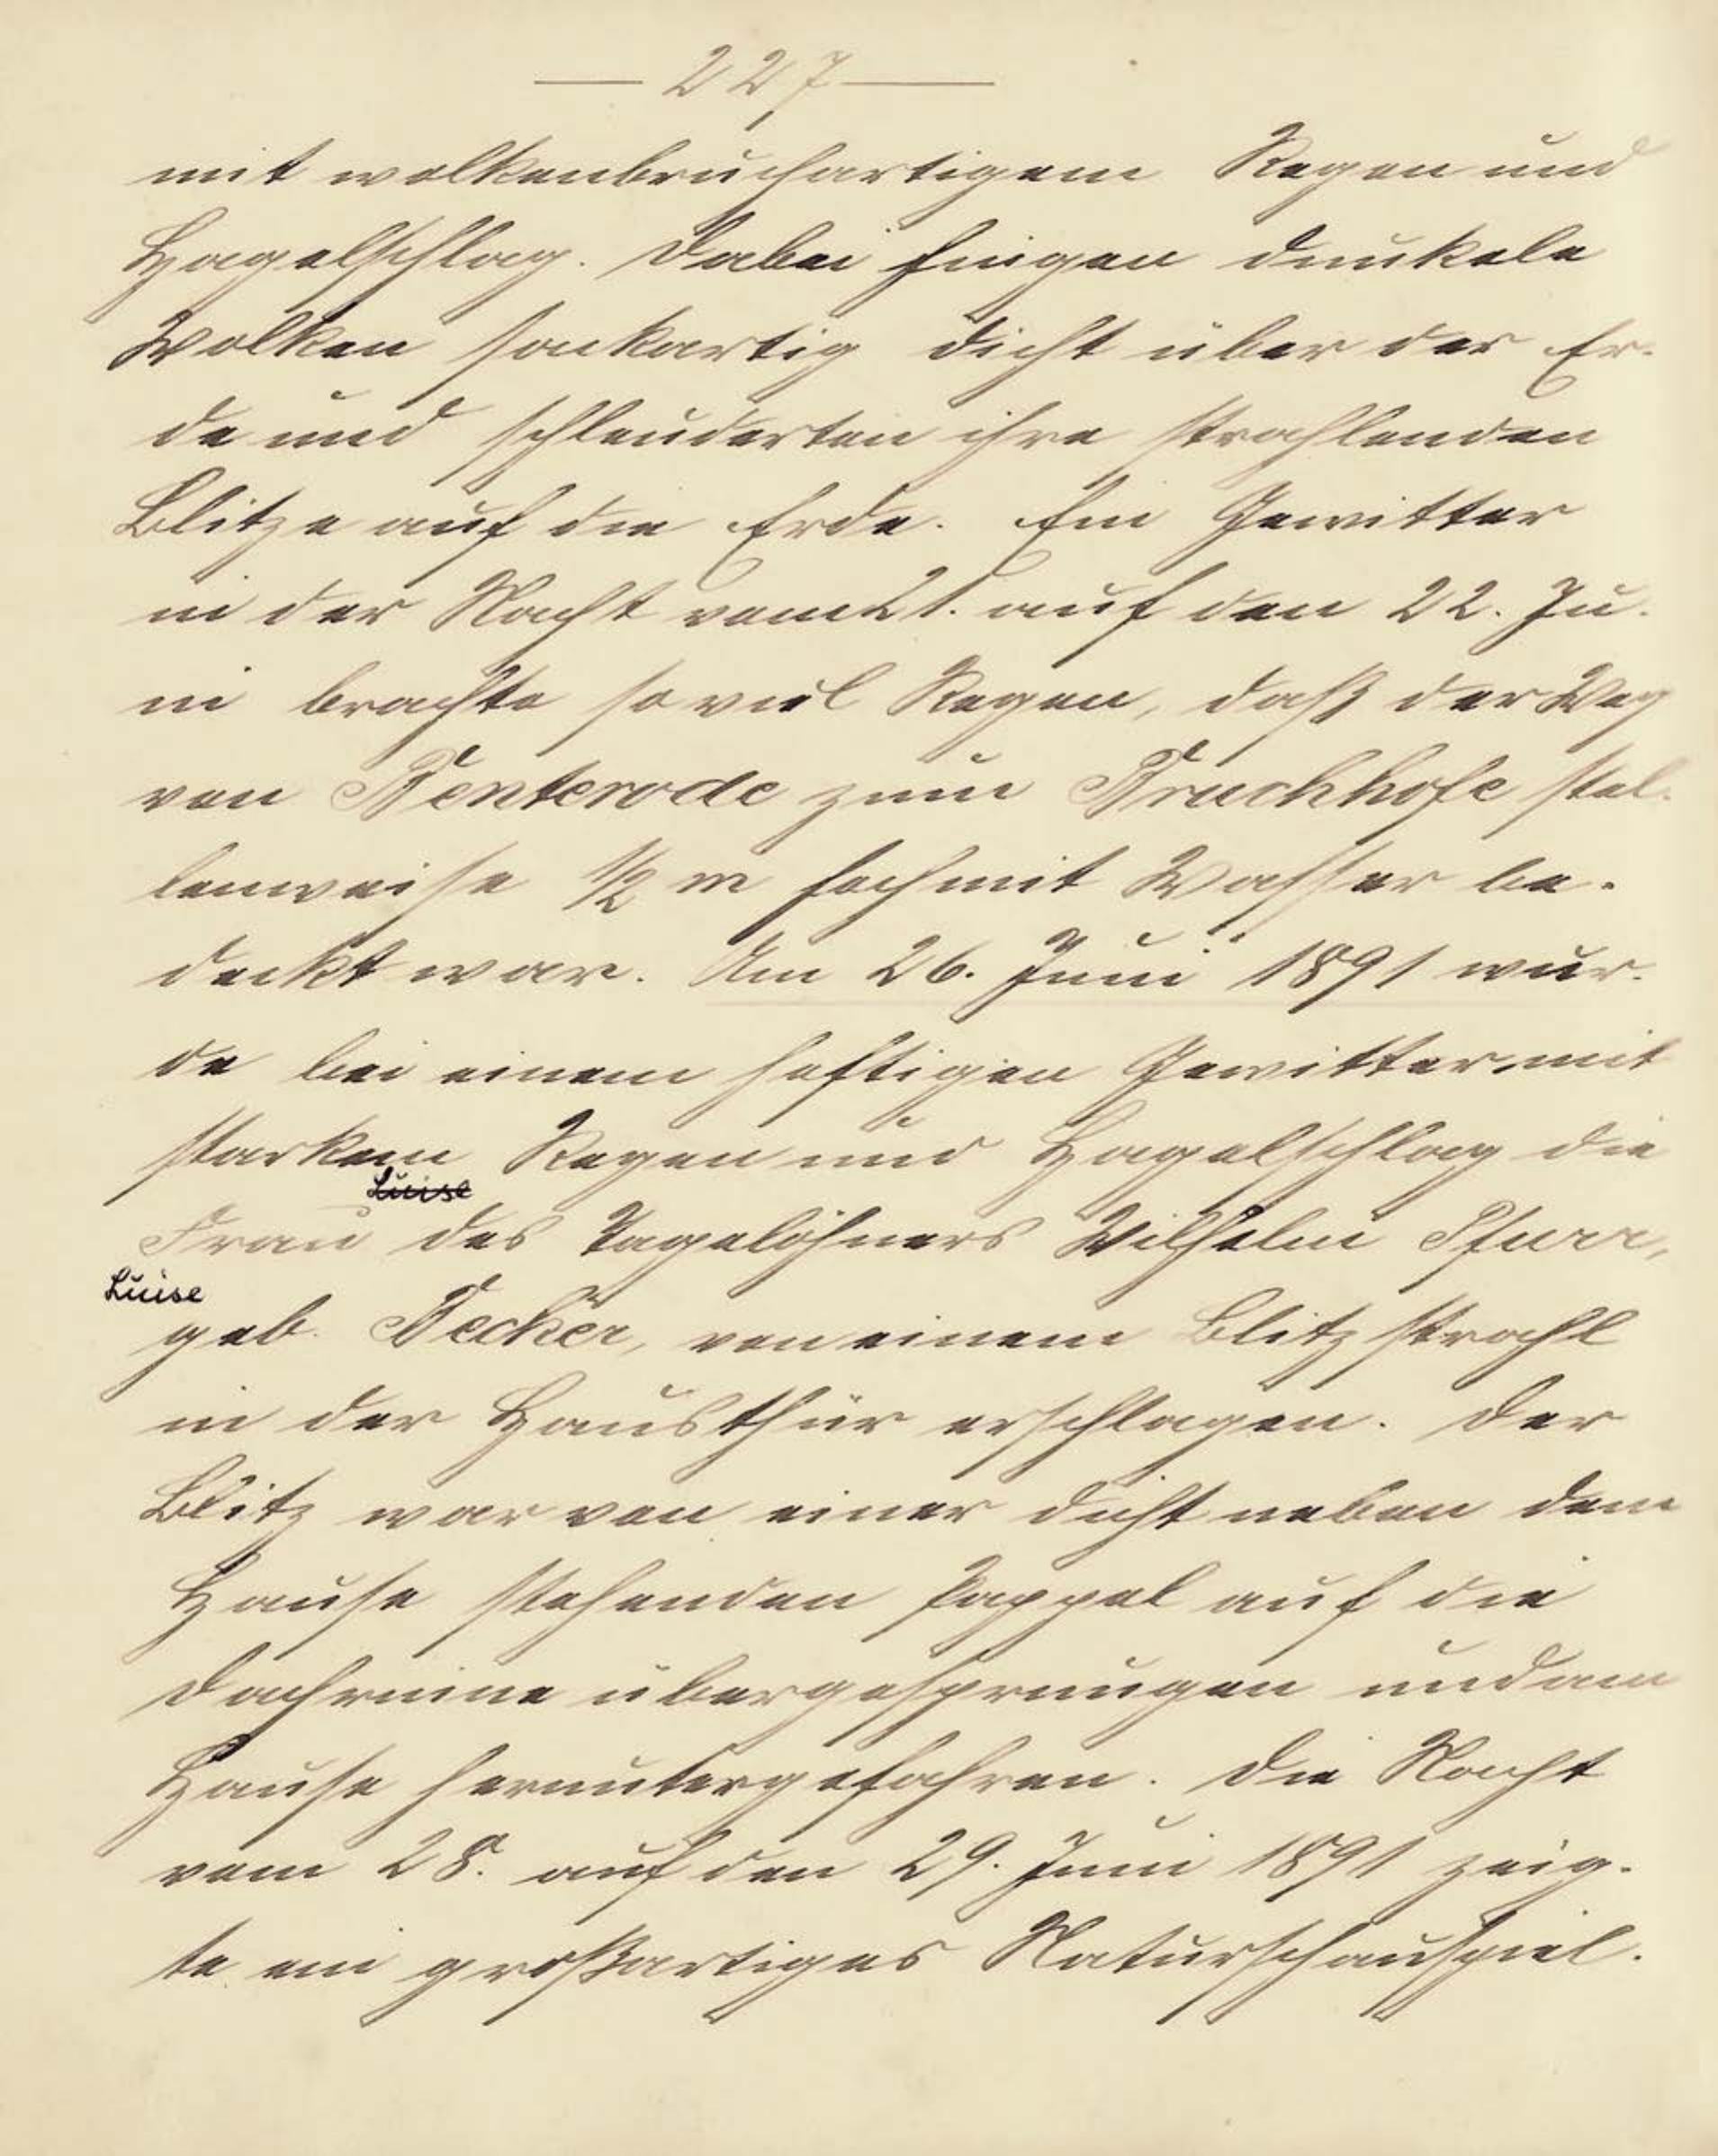 — 227 —
mit wolkenbruchartigem Regen und
Hagelschlag. Dabei hingen dunkele
Wolken sackartig dicht über der Er-
de und schleuderten ihre strahlenden
Blitze auf die Erde. Ein Gewitter
in der Nacht vom 21. auf den 22. Ju-
ni brachte soviel Regen, daß der Weg
von Benterode zum Bruchhofe stel-
lenweise ½ m hoch mit Wasser be-
deckt war. Am 26. Juni 1891 wur-
de bei einem heftigen Gewitter mit
starkem Regen und Hagelschlag die
Luise
Frau des Tagelöhners Wilhelm
Luise
geb. Becker, von einem Blitzstrahl
in der Hausthür erschlagen. Der
Blitz war von einer dicht neben dem
Hause stehenden Pappel auf die
Dachrinne übergesprungen und am
Hause heruntergefahren. Die Nacht
vom 28. auf den 29. Juni 1891 zeig-
te ein großartiges Naturschauspiel.